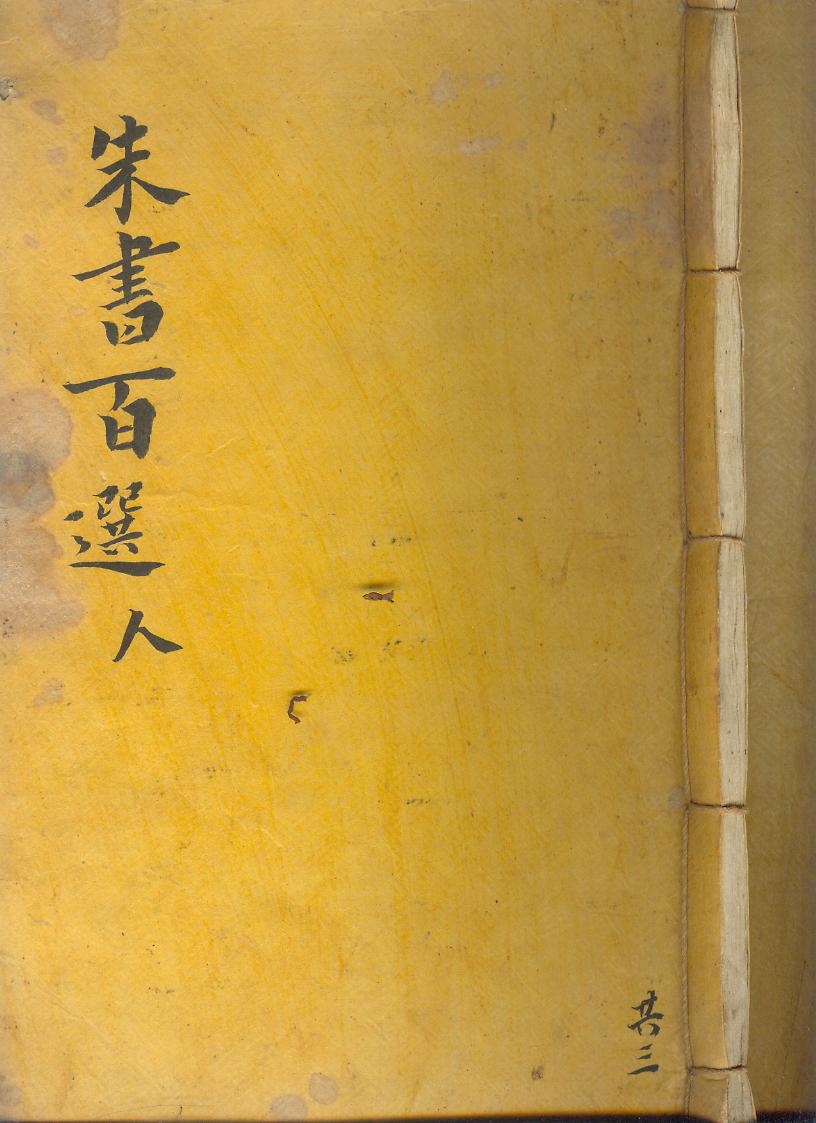 朱書百選 人
共三